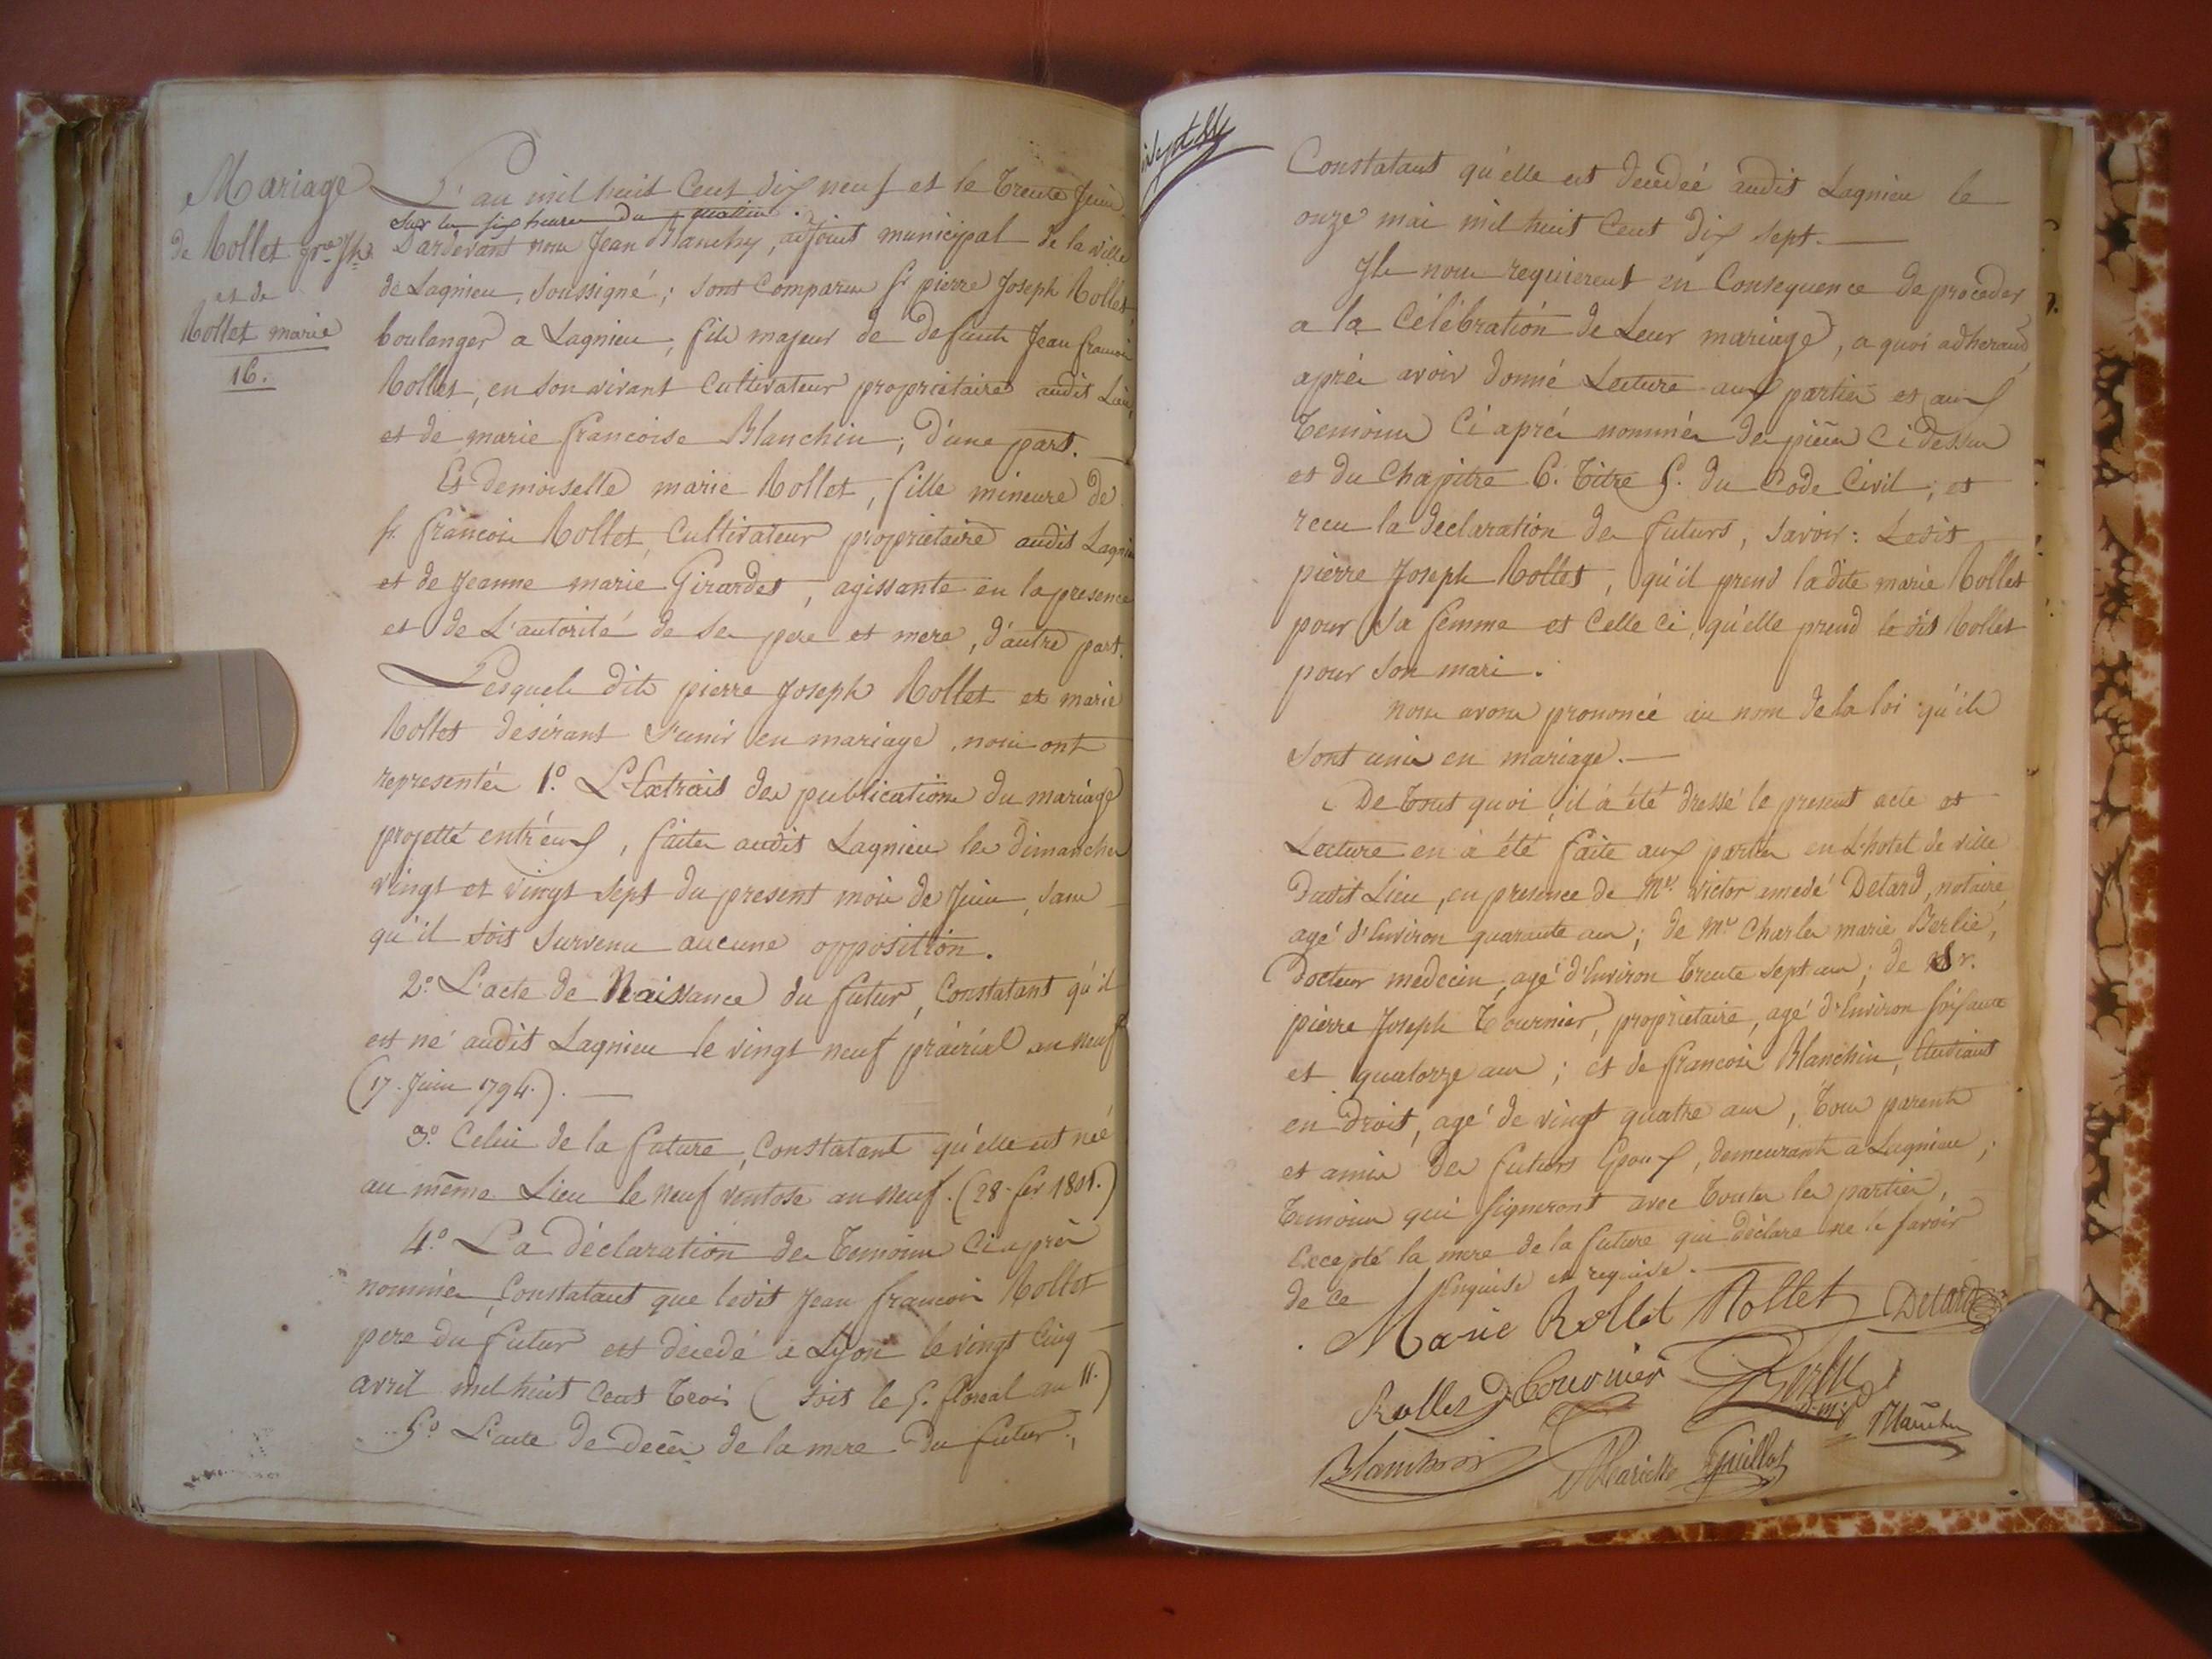 Mariage
de Rollet pre Jh.
et de
Rollet marie
16.
L'an mil huit Cent dix neuf et le trente Juin
sur les six heures du matin.
Pardevant nous Jean Blanchy, adjoint municipal de la ville
de Lagnieu, soussigné; sont comparus sr pierre Joseph Rollet
boulanger a Lagnieu, fils majeur de defunts Jean francois
Rollet, en son vivant Cultivateur proprietaire audit Lieu,
et de marie francoise Blanchin; d'une part.
Et demoiselle marie Rollet, fille mineure de
sr. francois Rollet, Cultivateur proprietaire audit Lagnieu
et de Jeanne marie Girardet, agissante en la presence
et de L'autorité de ses pere et mere, d'autre part.
Lesquels dits pierre Joseph Rollet et marie
Rollet desirant s'unir en mariage, nous ont
representés 1.o L'Extrait des publications du mariage
projetté entr'eux, faites audit Lagnieu les dimanches
vingt et vingt sept du present mois de Juin, sans
qu'il soit survenu aucune opposition.
2.o L'acte de Naissance du futur, Constatant qu'il
est né audit Lagnieu le vingt neuf prairial an neuf
(17. Juin 1794.).
3.o Celui de la future, Constatant qu'elle est née
au même Lieu le neuf ventose an neuf. (28. fer 1801.)
4.o La déclaration des temoins Ci après
nommés, Constatant que ledit Jean francois Rollet
pere du futur est décedé a Lyon le vingt Cinq
avril mil huit Cent trois (soit le 5. floreal an 11.)
5.o L'acte de decès de la mere du futur,
Constatant qu'elle est decedeé audit Lagnieu le
onze mai mil huit Cent dix sept.
Ils nous requierent en Consequence de proceder
a la Célébration de Leur mariage, a quoi adherand
aprés avoir donné Lecture aux parties et aux
Temoins Ci aprés nommés des pièces Ci dessus
et du Chapitre 6. Titre 5. du Code Civil; et
recu la declaration des futurs, savoir: Ledit
pierre Joseph Rollet, qu'il prend la dite marie Rollet
pour sa femme et Celle Ci, qu'elle prend ledit Rollet
pour son mari.
nous avons prononcé au nom de la loi qu'ils
sont unis en mariage.
De tout quoi, il a été dressé le present acte et
Lecture en a été faite aux parties en L'hotel de ville
dudit Lieu, en presence de Mr. victor emedé Detard, notaire,
agé d'Environ quarante ans; de Mr Charles marie Berlié,
Docteur medecin, agé d'Environ trente sept ans; de Sr.
pierre Joseph Tournier, proprietaire, agé d'Environ soixante
et quatorze ans; et de francois Blanchin, Etudiant
en Droit, agé de vingt quatre ans, tous parents
et amis des futurs Epoux, demeurants a Lagnieu;
temoins qui signeront avec toutes les parties,
Excepté la mere de la future qui déclare ne le savoir
de ce Enquise et requise.
Marie Rollet Rollet Detard
Rollet Tournier Berlié
d.m.
Blanchin Mariette Guillot Blanchy